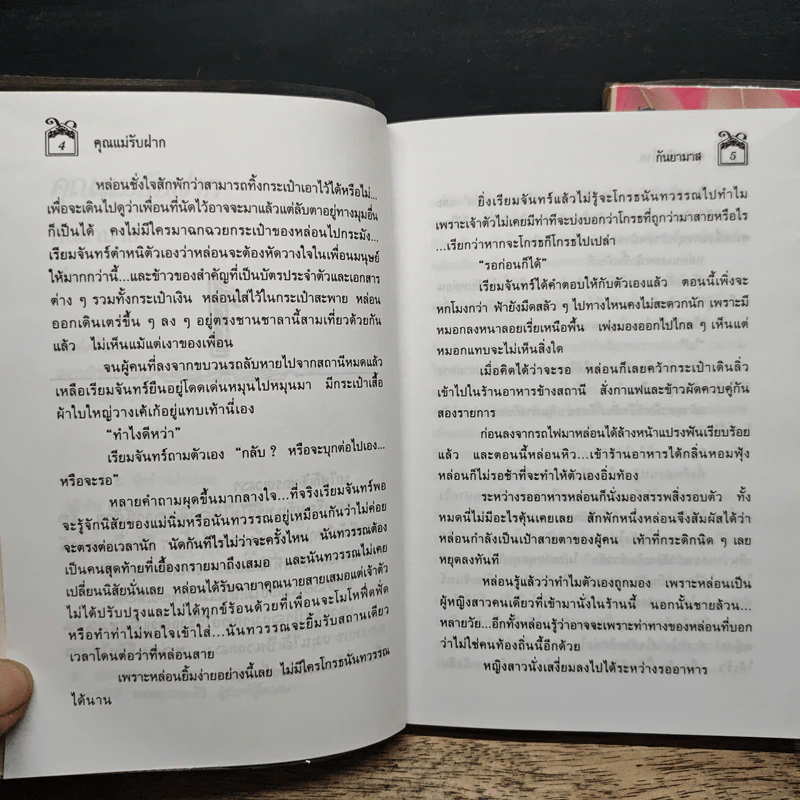 4 คุณแม่รับฝาก
หล่อนชั่งใจสักพักว่าสามารถทิ้งกระเป๋าเอาไว้ได้หรือไม่...
เพื่อจะเดินไปดูว่าเพื่อนที่นัดไว้อาจจะมาแล้วแต่ลับตาอยู่ทางมุมอื่น
ก็เป็นได้ คงไม่มีใครมาฉกฉวยกระเป๋าของหล่อนไปกระมัง...
เรียมจันทร์ตำหนิตัวเองว่าหล่อนจะต้องหัดวางใจในเพื่อนมนุษย์
ให้มากกว่านี้...และข้าวของสำคัญที่เป็นบัตรประจำตัวและเอกสาร
ต่าง ๆ รวมทั้งกระเป๋าเงิน หล่อนใส่ไว้ในกระเป๋าสะพาย หล่อน
ออกเดินเตร่ขึ้น ๆ ลง ๆ อยู่ตรงชานชาลานี้สามเที่ยวด้วยกัน
แล้ว ไม่เห็นแม้แต่เงาของเพื่อน
จนผู้คนที่ลงจากขบวนรถลับหายไปจากสถานีหมดแล้ว
เหลือเรียมจันทร์ยืนอยู่โดดเด่นหมุนไปหมุนมา มีกระเป๋าเสื้อ
ผ้าใบใหญ่วางเค้เก้อยู่แทบเท้านี่เอง
“ทำไงดีหว่า”
เรียมจันทร์ถามตัวเอง “กลับ ? หรือจะบุกต่อไปเอง...
หรือจะรอ”
หลายคำถามผุดขึ้นมากลางใจ...ที่จริงเรียมจันทร์พอ
จะรู้จักนิสัยของแม่นิ่มหรือนันทวรรณอยู่เหมือนกันว่าไม่ค่อย
จะตรงต่อเวลานัก นัดกันทีไรไม่ว่าจะครั้งไหน นันทวรรณต้อง
เป็นคนสุดท้ายที่เยื้องกรายมาถึงเสมอ และนันทวรรณไม่เคย
เปลี่ยนนิสัยนั่นเลย หล่อนได้รับฉายาคุณนายสายเสมอแต่เจ้าตัว
ไม่ได้ปรับปรุงและไม่ได้ทุกข์ร้อนด้วยที่เพื่อนจะโมโหฟึดฟัด
หรือทำท่าไม่พอใจเข้าใส่...นันทวรรณจะยิ้มรับสถานเดียว
เวลาโดนต่อว่าที่หล่อนสาย
เพราะหล่อนยิ้มง่ายอย่างนี้เลย ไม่มีใครโกรธนันทวรรณ
ได้นาน
กันยามาส 5
ยิ่งเรียมจันทร์แล้วไม่รู้จะโกรธนันทวรรณไปทำไม
เพราะเจ้าตัวไม่เคยมีท่าทีจะบ่งบอกว่าโกรธที่ถูกว่ามาสายหรือไร
...เรียกว่าหากจะโกรธก็โกรธไปเปล่า
“รอก่อนก็ได้”
เรียมจันทร์ได้คำตอบให้กับตัวเองแล้ว ตอนนี้เพิ่งจะ
หกโมงกว่า ฟ้ายังมืดสลัว ๆ ไปทางไหนคงไม่สะดวกนัก เพราะมี
หมอกลงหนาลอยเรี่ยเหนือพื้น เพ่งมองออกไปไกล ๆ เห็นแต่
หมอกแทบจะไม่เห็นสิ่งใด
เมื่อคิดได้ว่าจะรอ หล่อนก็เลยคว้ากระเป๋าเดินลิ่ว
เข้าไปในร้านอาหารข้างสถานี สั่งกาแฟและข้าวผัดควบคู่กัน
สองรายการ
ก่อนลงจากรถไฟมาหล่อนได้ล้างหน้าแปรงฟันเรียบร้อย
แล้ว และตอนนี้หล่อนหิว...เข้าร้านอาหารได้กลิ่นหอมฟุ้ง
หล่อนก็ไม่รอช้าที่จะทำให้ตัวเองอิ่มท้อง
ระหว่างรออาหารหล่อนก็นั่งมองสรรพสิ่งรอบตัว ทั้ง
หมดนี่ไม่มีอะไรคุ้นเคยเลย สักพักหนึ่งหล่อนจึงสัมผัสได้ว่า
หล่อนกำลังเป็นเป้าสายตาของผู้คน เท้าที่กระดิกนิด ๆ เลย
หยุดลงทันที
หล่อนรู้แล้วว่าทำไมตัวเองถูกมอง เพราะหล่อนเป็น
ผู้หญิงสาวคนเดียวที่เข้ามานั่งในร้านนี้ นอกนั้นชายล้วน...
หลายวัย...อีกทั้งหล่อนรู้ว่าอาจจะเพราะท่าทางของหล่อนที่บอก
ว่าไม่ใช่คนท้องถิ่นนี้อีกด้วย
หญิงสาวนั่งเสงี่ยมลงไปได้ระหว่างรออาหาร